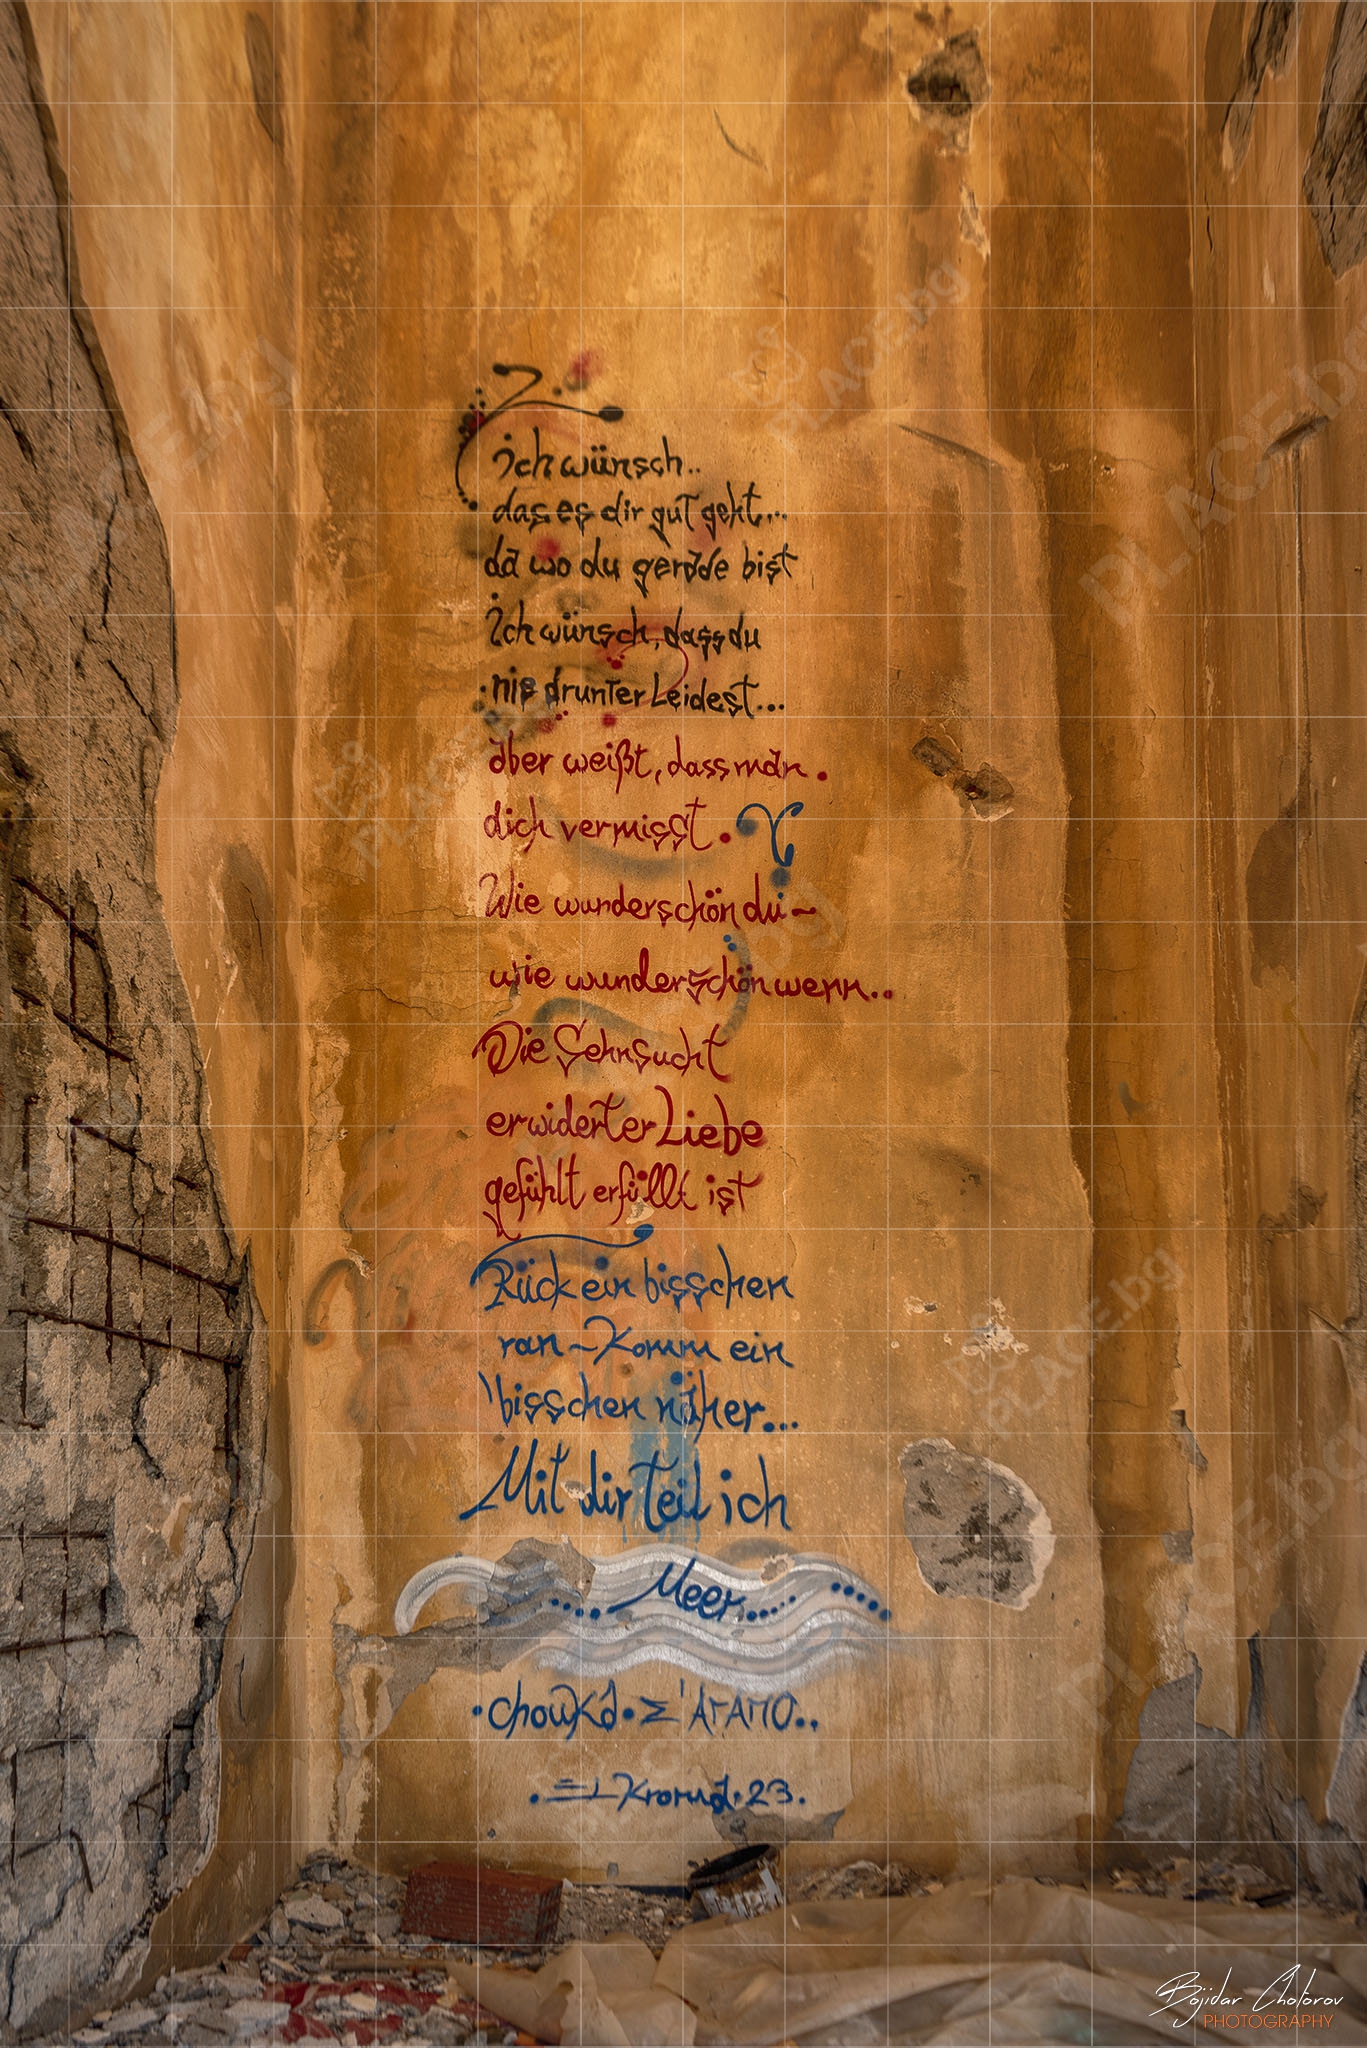 ich wünsch..
das es dir gut geht...
da wo du gerade bist
ich wünsch, dass du
nie drunter Leidest...
aber weißt, dass man.
dich vermisst.
Wie wunderschön du ~
wie wunderschön wenn..
Die Sehnsucht
erwiderter Liebe
gefühlt erfüllt ist
Rück ein bisschen
ran ~ Komm ein
bisschen näher...
Mit dir teil ich
....Meer.....
•chouka•Σ'ΑΓΑΠΟ..
23.
Bojidar Chotorov
PHOTOGRAPHY
PLACE.bg
PLACE.bg
PLACE.bg
PLACE.bg